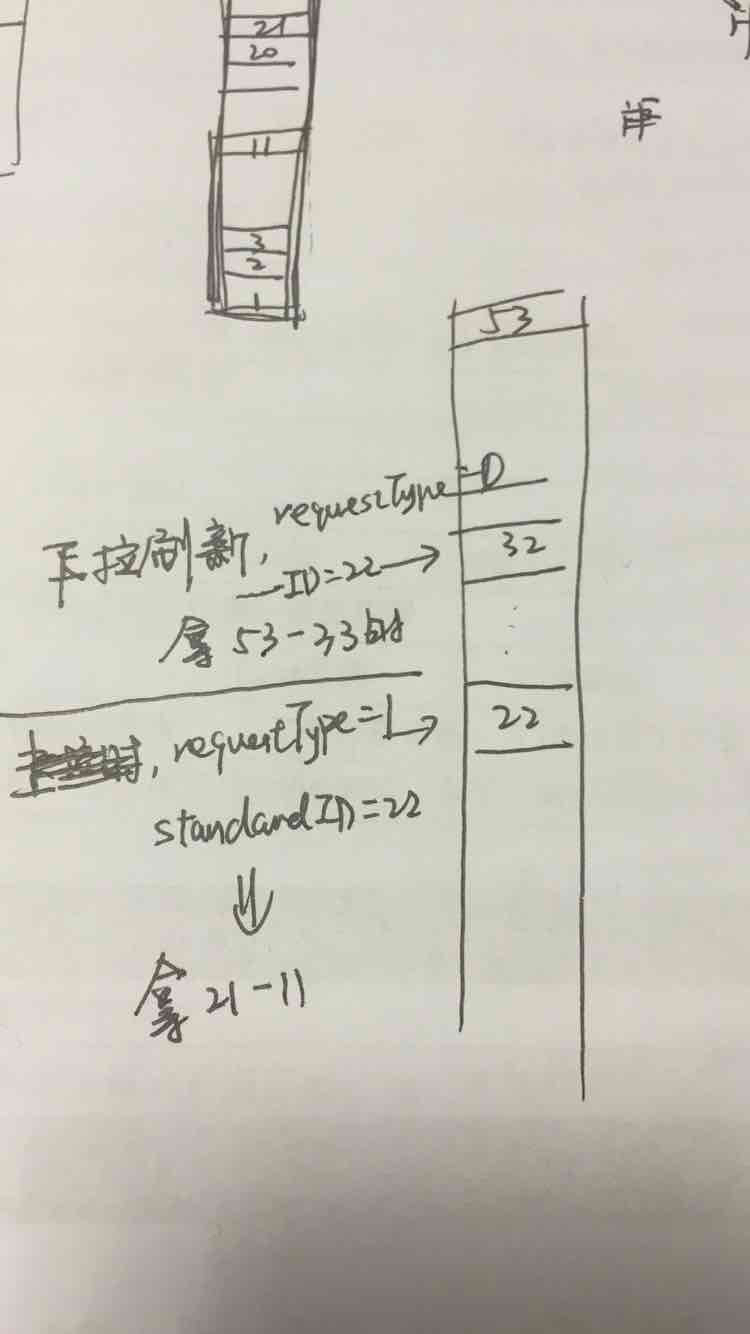 21
20
11
3
2
1
53
下拉刷新, requestType=0
ID=22→
32
拿 53-33的
requestType=1→
22
standardID=22
拿 21-11